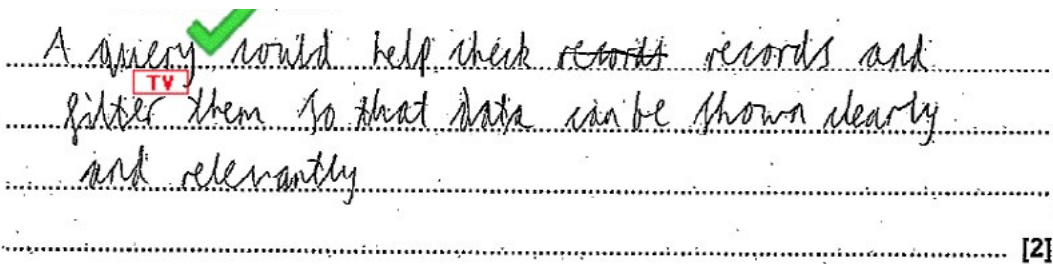 A quiery could help check records records and
TV
filter them so that data can be shown clearly
and relevantly
[2]